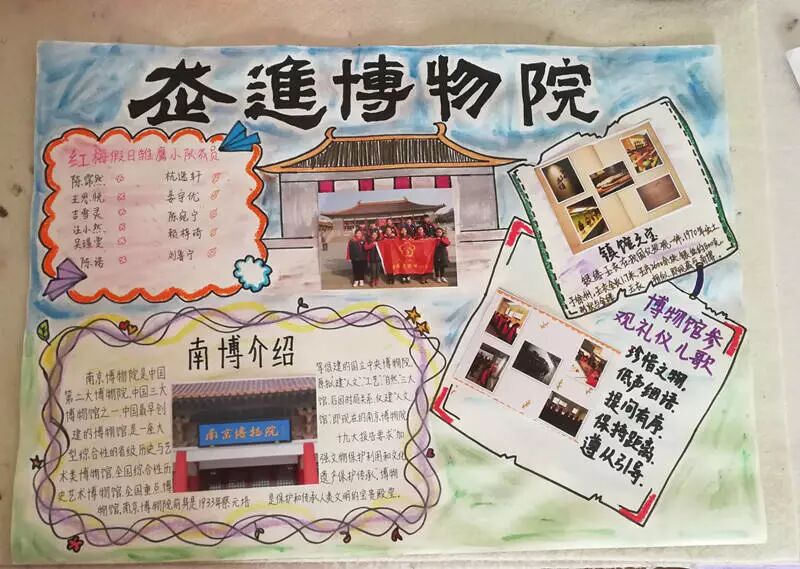 走進博物院
红梅假日雏鹰小队成员
杭逸轩
姜宇优
吉雪灵
陈宛宁
汪小然
顾梓琦
陈诺
刘睿宁
镇院之宝
南博介绍
南京博物院是中国
第二大博物院,中国三大
博物馆之一。中国最早创
建的博物馆,是一座大
型综合性的省级历史与艺
术类博物馆,全国综合性历
史艺术博物馆,全国重点博
物馆,南京博物院前身是1933年蔡元培
等倡建的国立中央博物院,
原拟建"人文"、"工艺"、"自然"三大
馆,后因时局关系,仅建"人文
馆",即现在的南京博物院
十九大报告要求"加
强文物保护利用和文化
遗产保护传承",博物
是保护和传承人类文明的宝贵殿堂。
南京博物院
博物馆参
观礼仪儿歌
珍惜文物,
低声细语,
提问有序,
保持距离,
遵从引导。